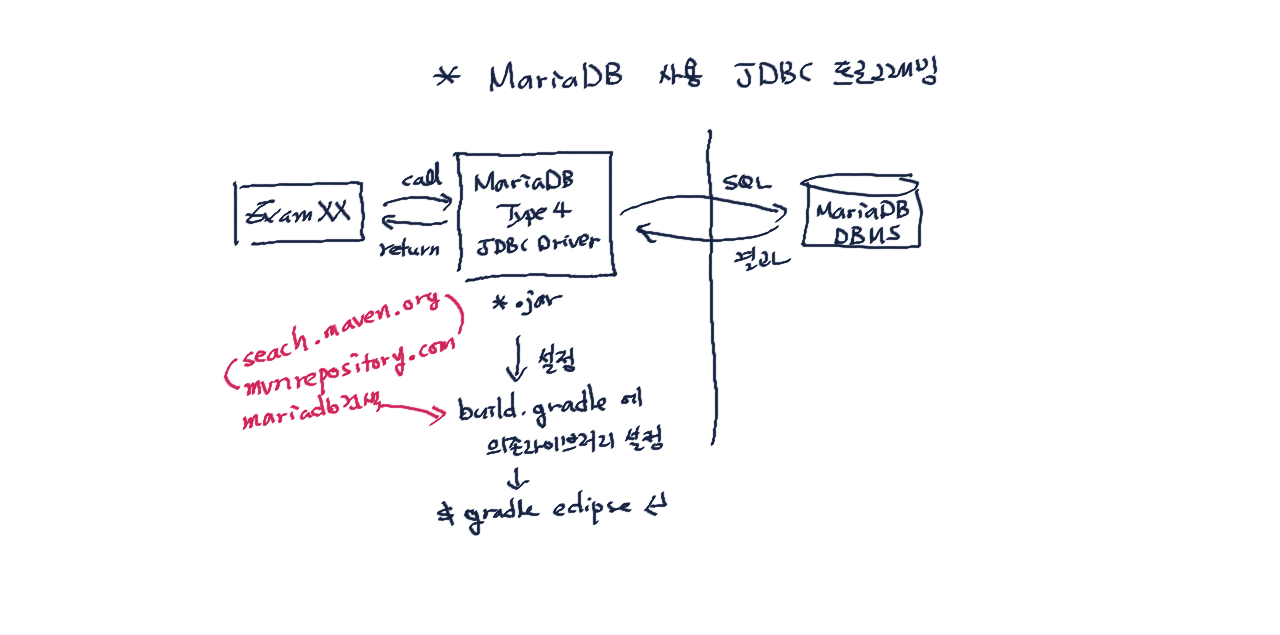 * MariaDB 사용 JDBC 프로그래밍
ExamXX
call
return
MariaDB
Type 4
JDBC Driver
SQL
결과
MariaDB
DBMS
*.jar
seach.maven.org
mvnrepository.com
mariadb검색
설정
build.gradle 에
의존라이브러리 설정
$ gradle eclipse ↵